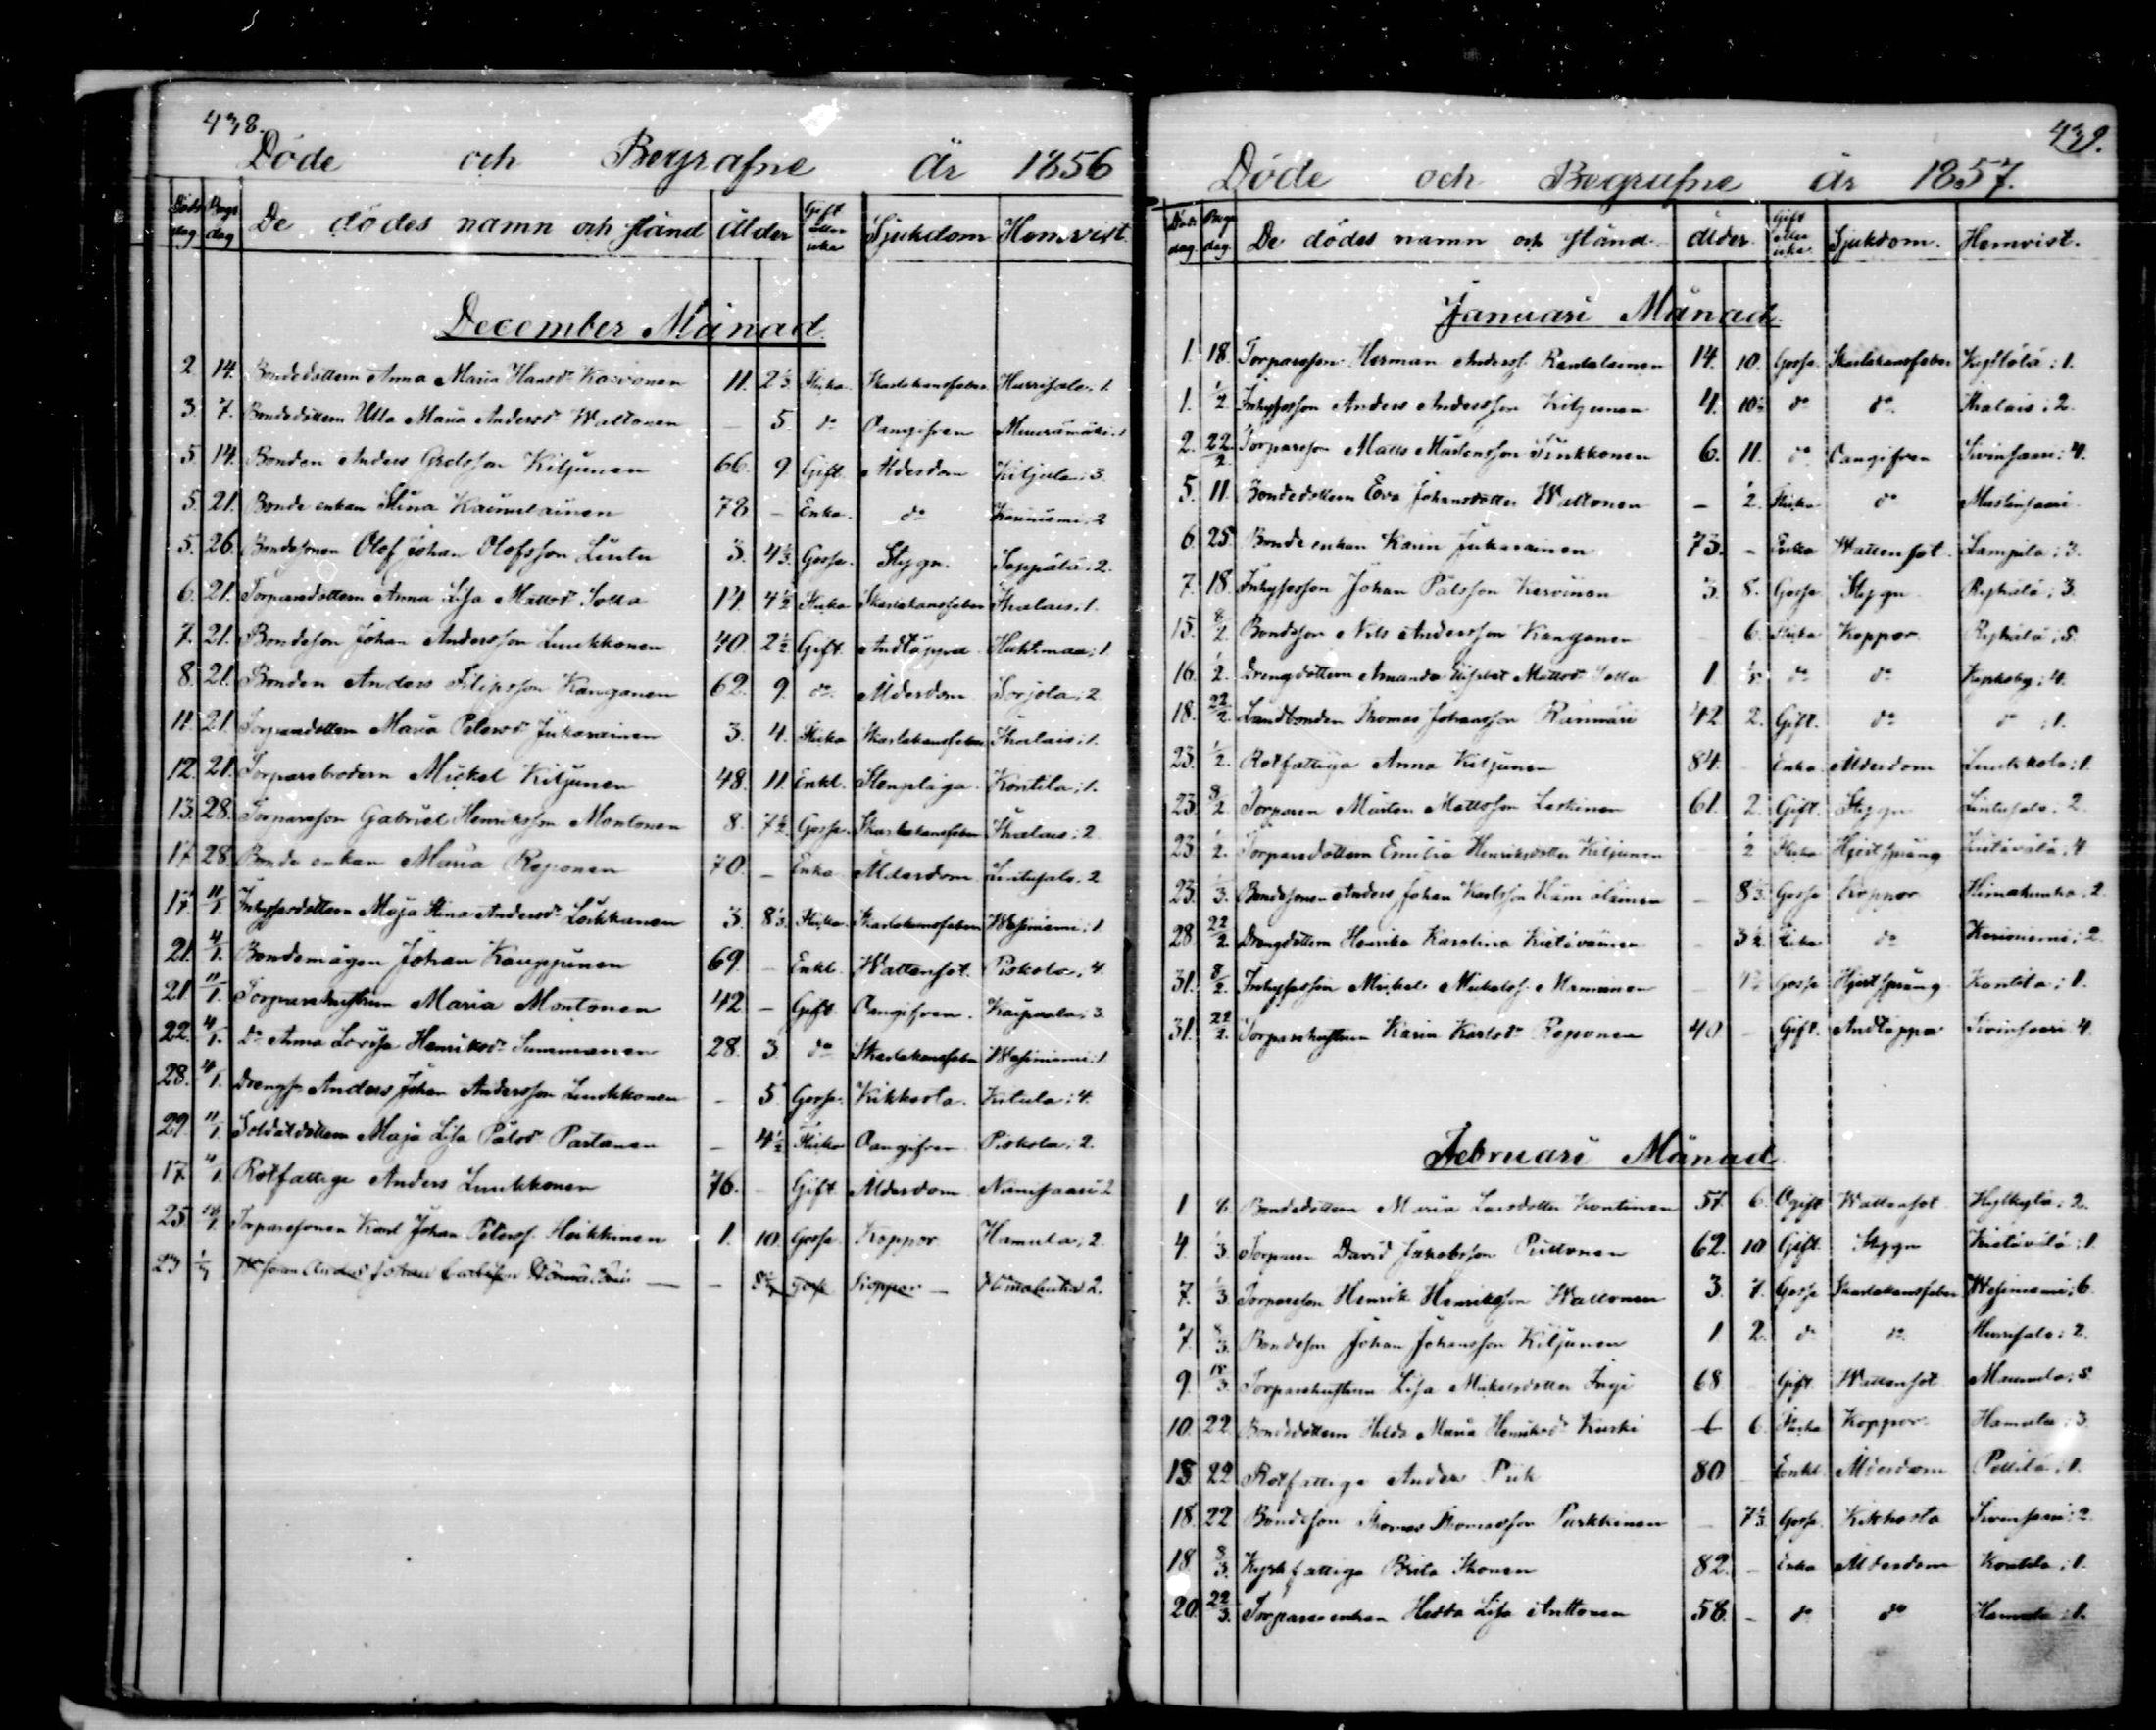 438.
Döde och Begrafne År 1856
Döds dag Begr dag De dödes namn och stånd ålder Gift eller icke Sjukdom Hemvist.
December Månad.
2 14. Bondedottern Anna Maria Hansd:r Koivonen 11. 2 1/3 Flicka. Skarlakansfeber Hurrisalo; 1.
3. 7. Bondedottern Ulla Maria Andersd:r Waltonen — 5. d:o Oangifven
5. 14. Bonden Anders Grelsson Kiljunen 66. 9. Gift. Ålderdom Kiljula; 3.
5. 21. Bonde enkan Stina Kainulainen 78 - Enka. d:o Kariniemi; 2
5. 26. Bondesonen Olof Johan Olofsson Lintu 3. 4 1/3 Gosse. Stygn. Seppälä; 2.
6. 21. Torparedottern Anna Lisa Mattsd:r Solla 14. 4 1/2 Flicka Skarlakansfeber Ihalais; 1.
7. 21. Bondeson Johan Andersson Luukkonen 40. 2 1/2 Gift. Andtäppa Huhtimaa; 1
8. 21. Bonden Anders Filipsson Kanganen 62. 9. d:o Ålderdom Sorjola; 2
11. 21. Torparedottern Maria Petersd:r Jukarainen 3. 4. Flicka Skarlakansfeber Ihalais; 1.
12. 21. Torparebrodern Mickel Kiljunen 48. 11. Enkl. Stenplåga. Kontila; 1.
13. 28. Torpareson Gabriel Henriksson Montonen 8. 7 1/2 Gosse. Skarlakansfeber Ihalais; 2
17. 28. Bonde enkan Maria Reponen 70. - Enka Ålderdom Lintusalo. 2
17. 11/1. Inhysesdottern Maja Stina Andersd:r Löikkanen 3. 8 1/3 Flicka. Skarlakansfebern Wesiniemi; 1
21. 4/1. Bondemågen Johan Kauppinen 69. - Enkl. Wattensot. Piskola; 4.
21. 11/1. Torparehustrun Maria Montonen 42 - Gift. Oangifven. Kaipaala; 3.
22. 4/1. D:o Anna Lovisa Henriksd:r Summanen 28. 3. d:o Skarlakansfeber Wesiniemi; 1
28. 4/1. Drengs. Anders Johan Andersson Luukkonen - 5. Gosse. Kikhosta. Kitula; 4.
29. 11/1. Soldatdottern Maja Lisa Pålsd:r Partanen - 4 1/2 Flicka Oangifven Piskola; 2.
17. 4/1. Rotfattige Anders Luukkonen 76. - Gift Ålderdom Niinisaari 2
25. Torparesonen Karl Johan Peterss. Heikkinen 1. 10. Gosse. Koppor Hamula; 2.
23 Anders Johan Carlsson — - Gosse Koppor — 2.
439.
Döde och Begrafne År 1857.
Döds dag Begr dag De dödes namn och stånd ålder Gift eller icke Sjukdom. Hemvist.
Januari Månad.
1. 18. Torpareson Herman Anderss. Rantalainen 14. 10. Gosse. Skarlakansfeber Kystölä; 1.
1. 1/2. Inhysesson Anders Andersson Kiljunen 4. 10 1/2 d:o d:o Ihalais; 2.
2. 22/2. Torpareson Matts Mårtensson Sinkkonen 6. 11. d:o Oangifven Sivinsaari; 4.
5. 11. Bondedottern Eva Johansdotter Waltonen - 1/2. Flicka d:o Mustinsaari
6. 25. Bonde enkan Karin Jukarainen 73. - Enka Wattensot. Lampila; 3.
7. 18. Inhysesson Johan Pålsson Kervinen 3. 8. Gosse Stygn Ryhälä; 3.
15. 8/2. Bondeson Nils Andersson Kanganen 6. Flicka Koppor Ryhälä; 5.
16. 1/2. Drengdottern Amanda Elisabet Mattsd:r Solla 1. d:o d:o Kyrkoby; 4.
18. 22/2. Landbonden Thomas Johansson Rinmäri 42 2. Gift. d:o d:o; 1.
23. 1/2. Rotfattiga Anna Kiljunen 84. Enka Ålderdom Luukkola; 1.
23. 8/2. Torparen Mårten Mattsson Leskinen 61. 2. Gift. Stygn Lintusalo. 2.
23. 1/2. Torparedottern Emilia Henriksdotter Kiljunen - 1/2 Flicka Hjertsprång Kietävälä; 4.
23. 1/3. Bondesonen Anders Johan Karlsson Hämäläinen - 8 1/3. Gosse Koppor Himahuuha. 2.
28. 22/2. Drengdottern Henrika Karolina Kietäväinen - 3 1/2 Flicka d:o Kariniemi; 2.
31. 8/2. Inhysesson Mickel Mickelss. Manninen Gosse Hjertsprång Kontila; 1.
31. 22/2. Torparehustrun Karin Karlsd:r Reponen 40 - Gift. Andtäppa Sivinsaari 4.
Februari Månad.
1 Bondedottern Maria Larsdotter Kontinen 57. 6. Ogift Wattensot. Hylkylä; 2.
4. 1/3. Torparen David Jakobsson Puttonen 62. 10 Gift. Stygn Kietävälä; 1.
7. 1/3. Torpareson Henrik Henriksson Waltonen 3. 7. Gosse Skarlakansfeber Wesiniemi; 6.
7. 8/3. Bondeson Johan Johansson Kiljunen 1 2. d:o d:o Hurrisalo; 2.
9. 15/3. Torparehustrun Lisa Mickelsdotter Inyi 68 - Gift Wattensot Maunula; 5.
10. 22. Bondedottern Hilda Maria Henriksd:r Kurki 6. Flicka Koppor Hamula; 3.
13 22 Rotfattige Anders Piik 80 - Enkl. Ålderdom Pellilä; 1.
18. 22 Bondeson Thomas Thomasson Purkkinen - 7 1/3. Gosse. Kikhosta Sivinsaari; 2.
18 8/3. Kyrkfattiga Brita Ihonen 82. - Enka Ålderdom Kontila; 1.
20. 22/3. Torpare enkan Hedda Lisa Anttonen 58. - d:o d:o Hamula; 1.